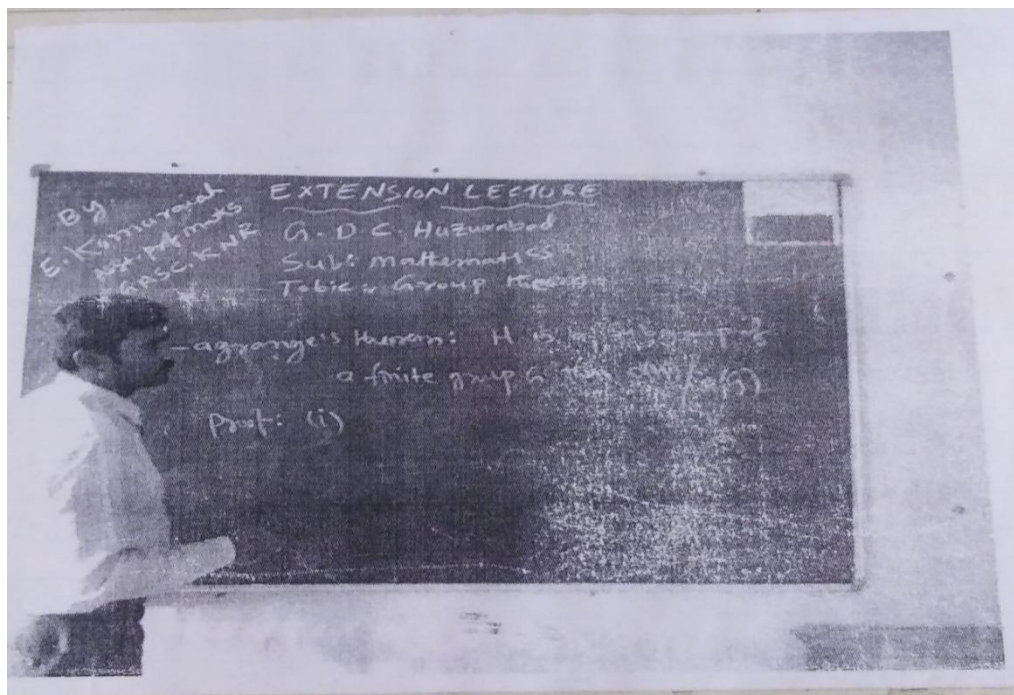 By
E. Kumuraiah
Asst. Prof. maths
GASC. KNR
EXTENSION LECTURE
G. D C. Huzurabad
Sub: mathematics
Tobic Group
Lagrange's theorem: H is
a finite group G then o(H)/o(G)
Proof: (i)